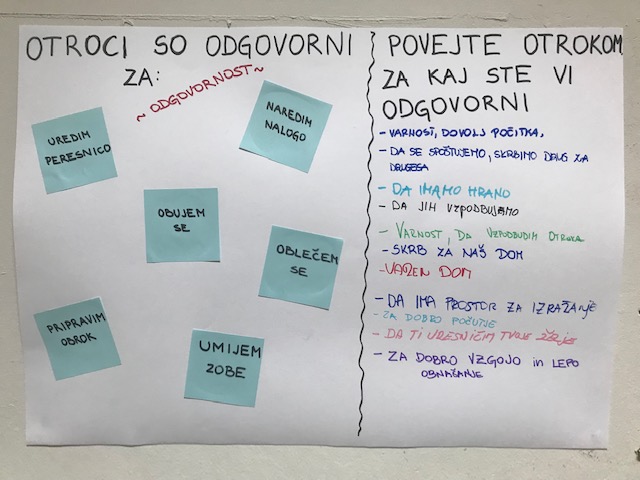 OTROCI SO ODGOVORNI
ZA:
~ ODGOVORNOST ~
UREDIM
PERESNICO
NAREDIM
NALOGO
OBUJEM
SE
OBLEČEM
SE
PRIPRAVIM
OBROK
UMIJEM
ZOBE
POVEJTE OTROKOM
ZA KAJ STE VI
ODGOVORNI
- VARNOST, DOVOLJ POČITKA,
- DA SE SPOŠTUJEMO, SKRBIMO DRUG ZA
DRUGEGA
- DA IMAMO HRANO
- DA JIH VZPODBUJAMO
- VARNOST, DA VZPODBUDIM OTROKA
- SKRB ZA NAŠ DOM
- VAREN DOM
- DA IMA PROSTOR ZA IZRAŽANJE
- ZA DOBRO POČUTJE
- DA TI URESNIČIM TVOJE ŽELJE
- ZA DOBRO VZGOJO in LEPO
OBNAŠANJE